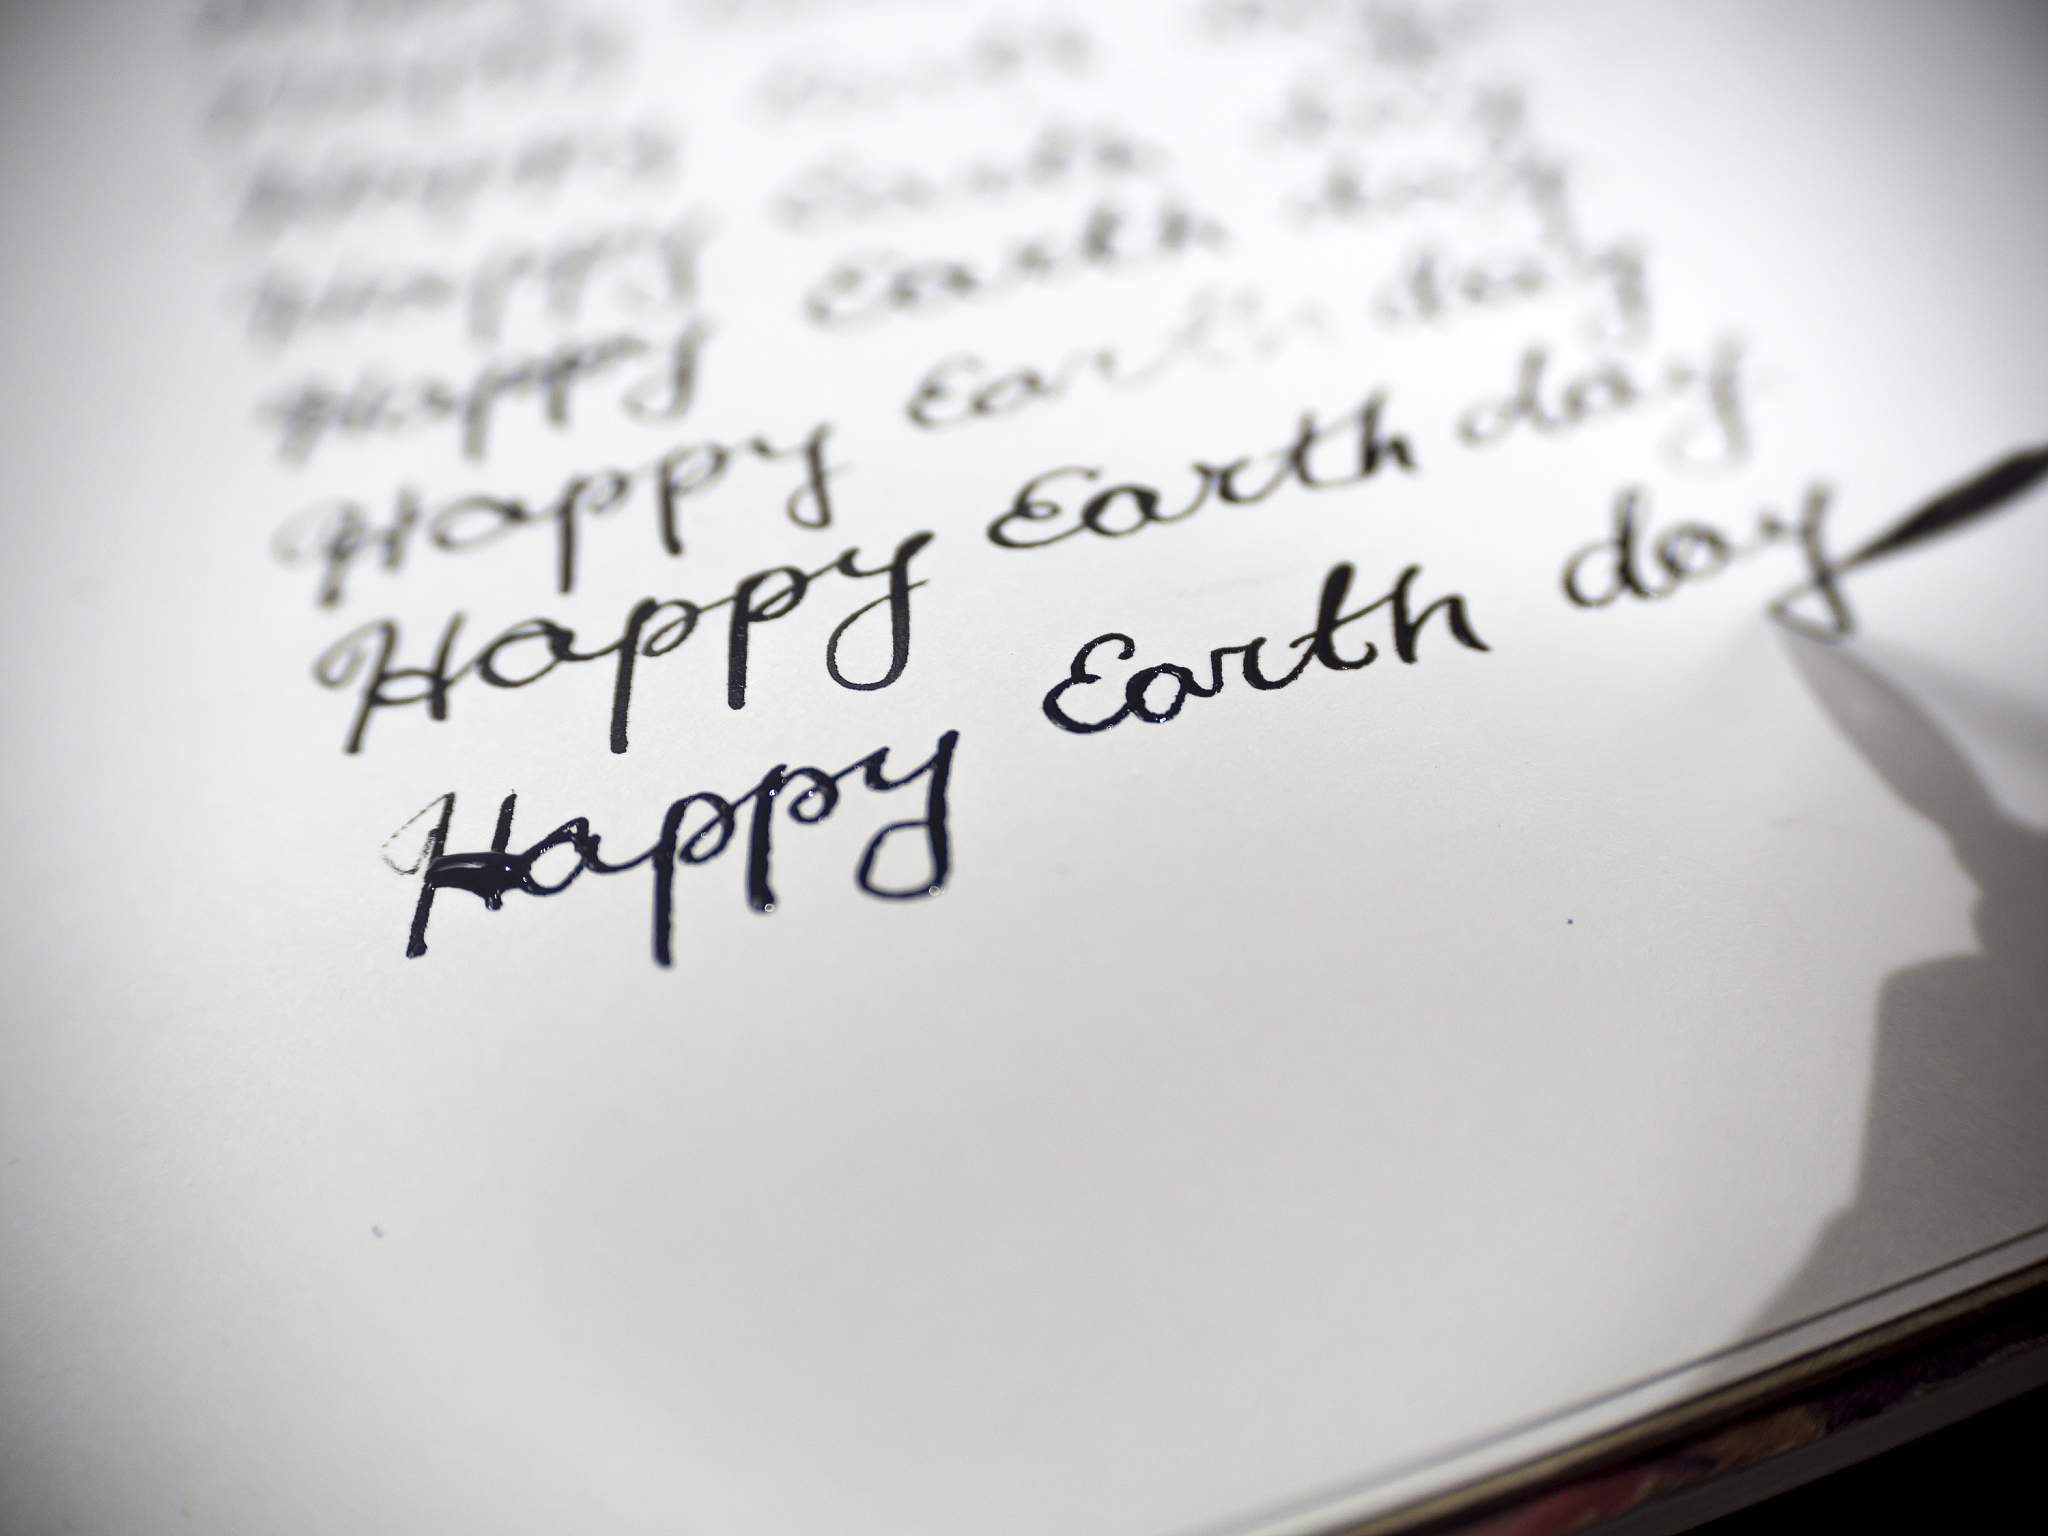 Happy Earth day
Happy Earth day
Happy Earth day
Happy Earth day
Happy Earth day
Happy Earth day